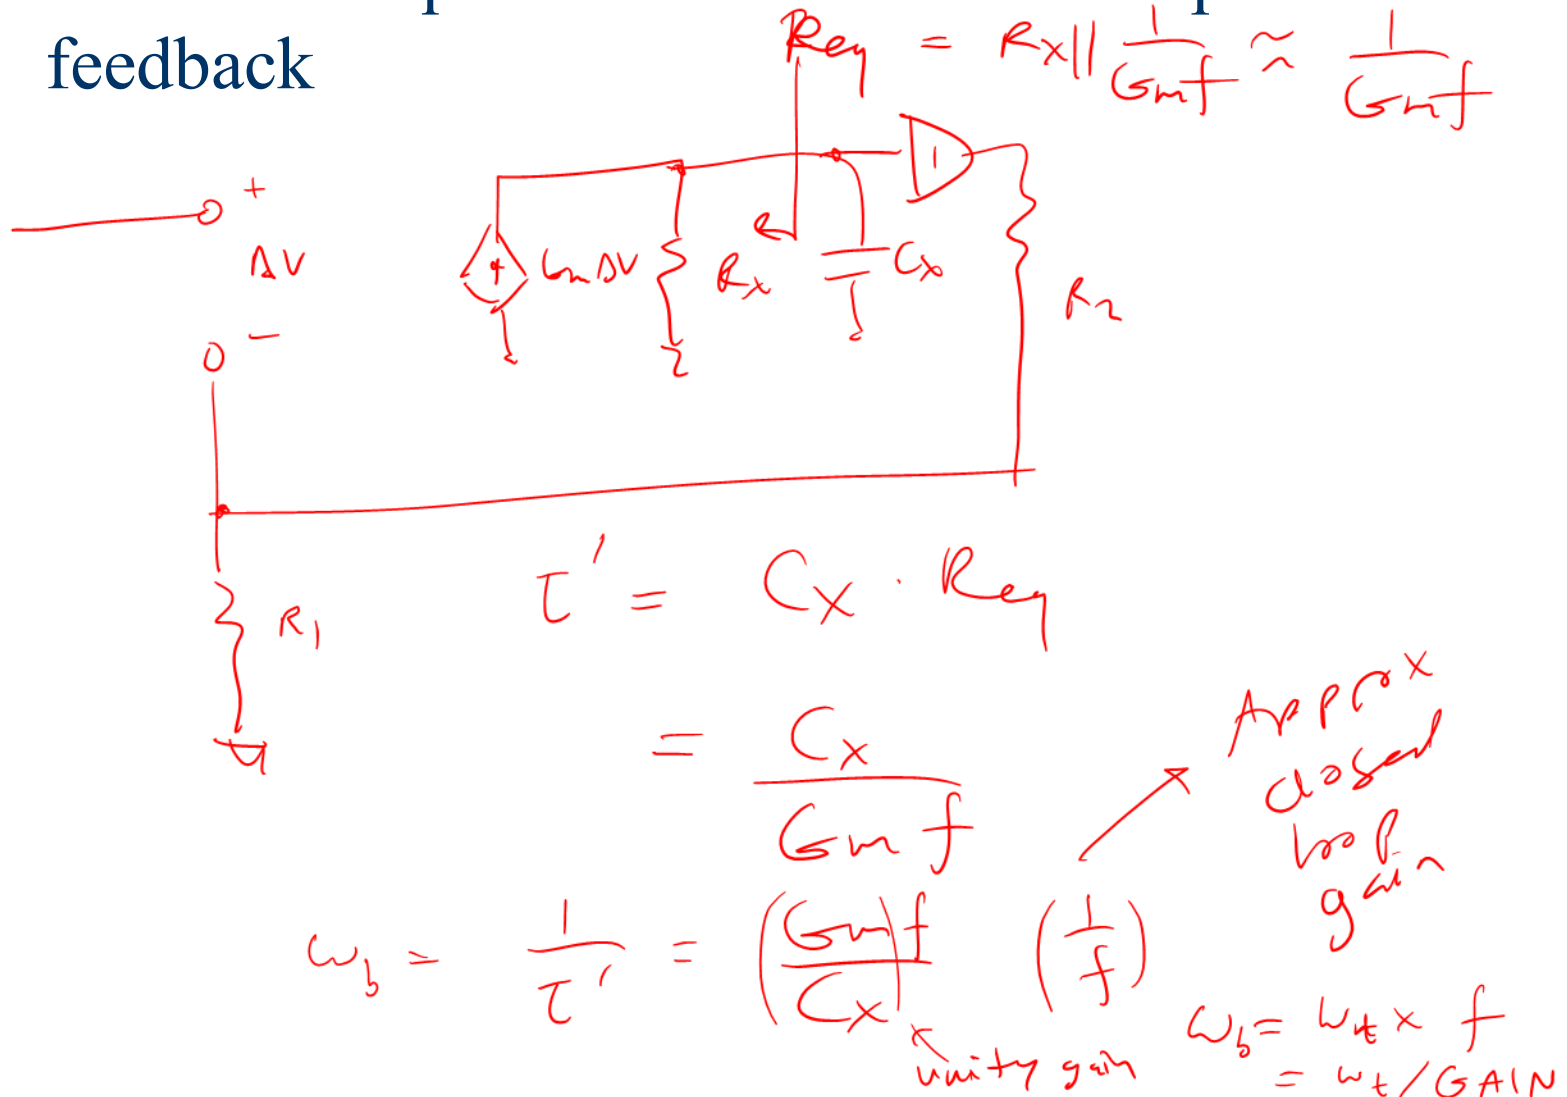 feedback
Req = Rx || 1/Gmf ≈ 1/Gmf
+
ΔV
−
GmΔV
Rx
Cx
1
R2
R1
τ' = Cx · Req
= Cx / Gm f
Approx
closed
loop
gain
ωb = 1/τ' = (Gm/Cx) f (1/f)
unity gain
ωb = ωt x f
= ωt / GAIN